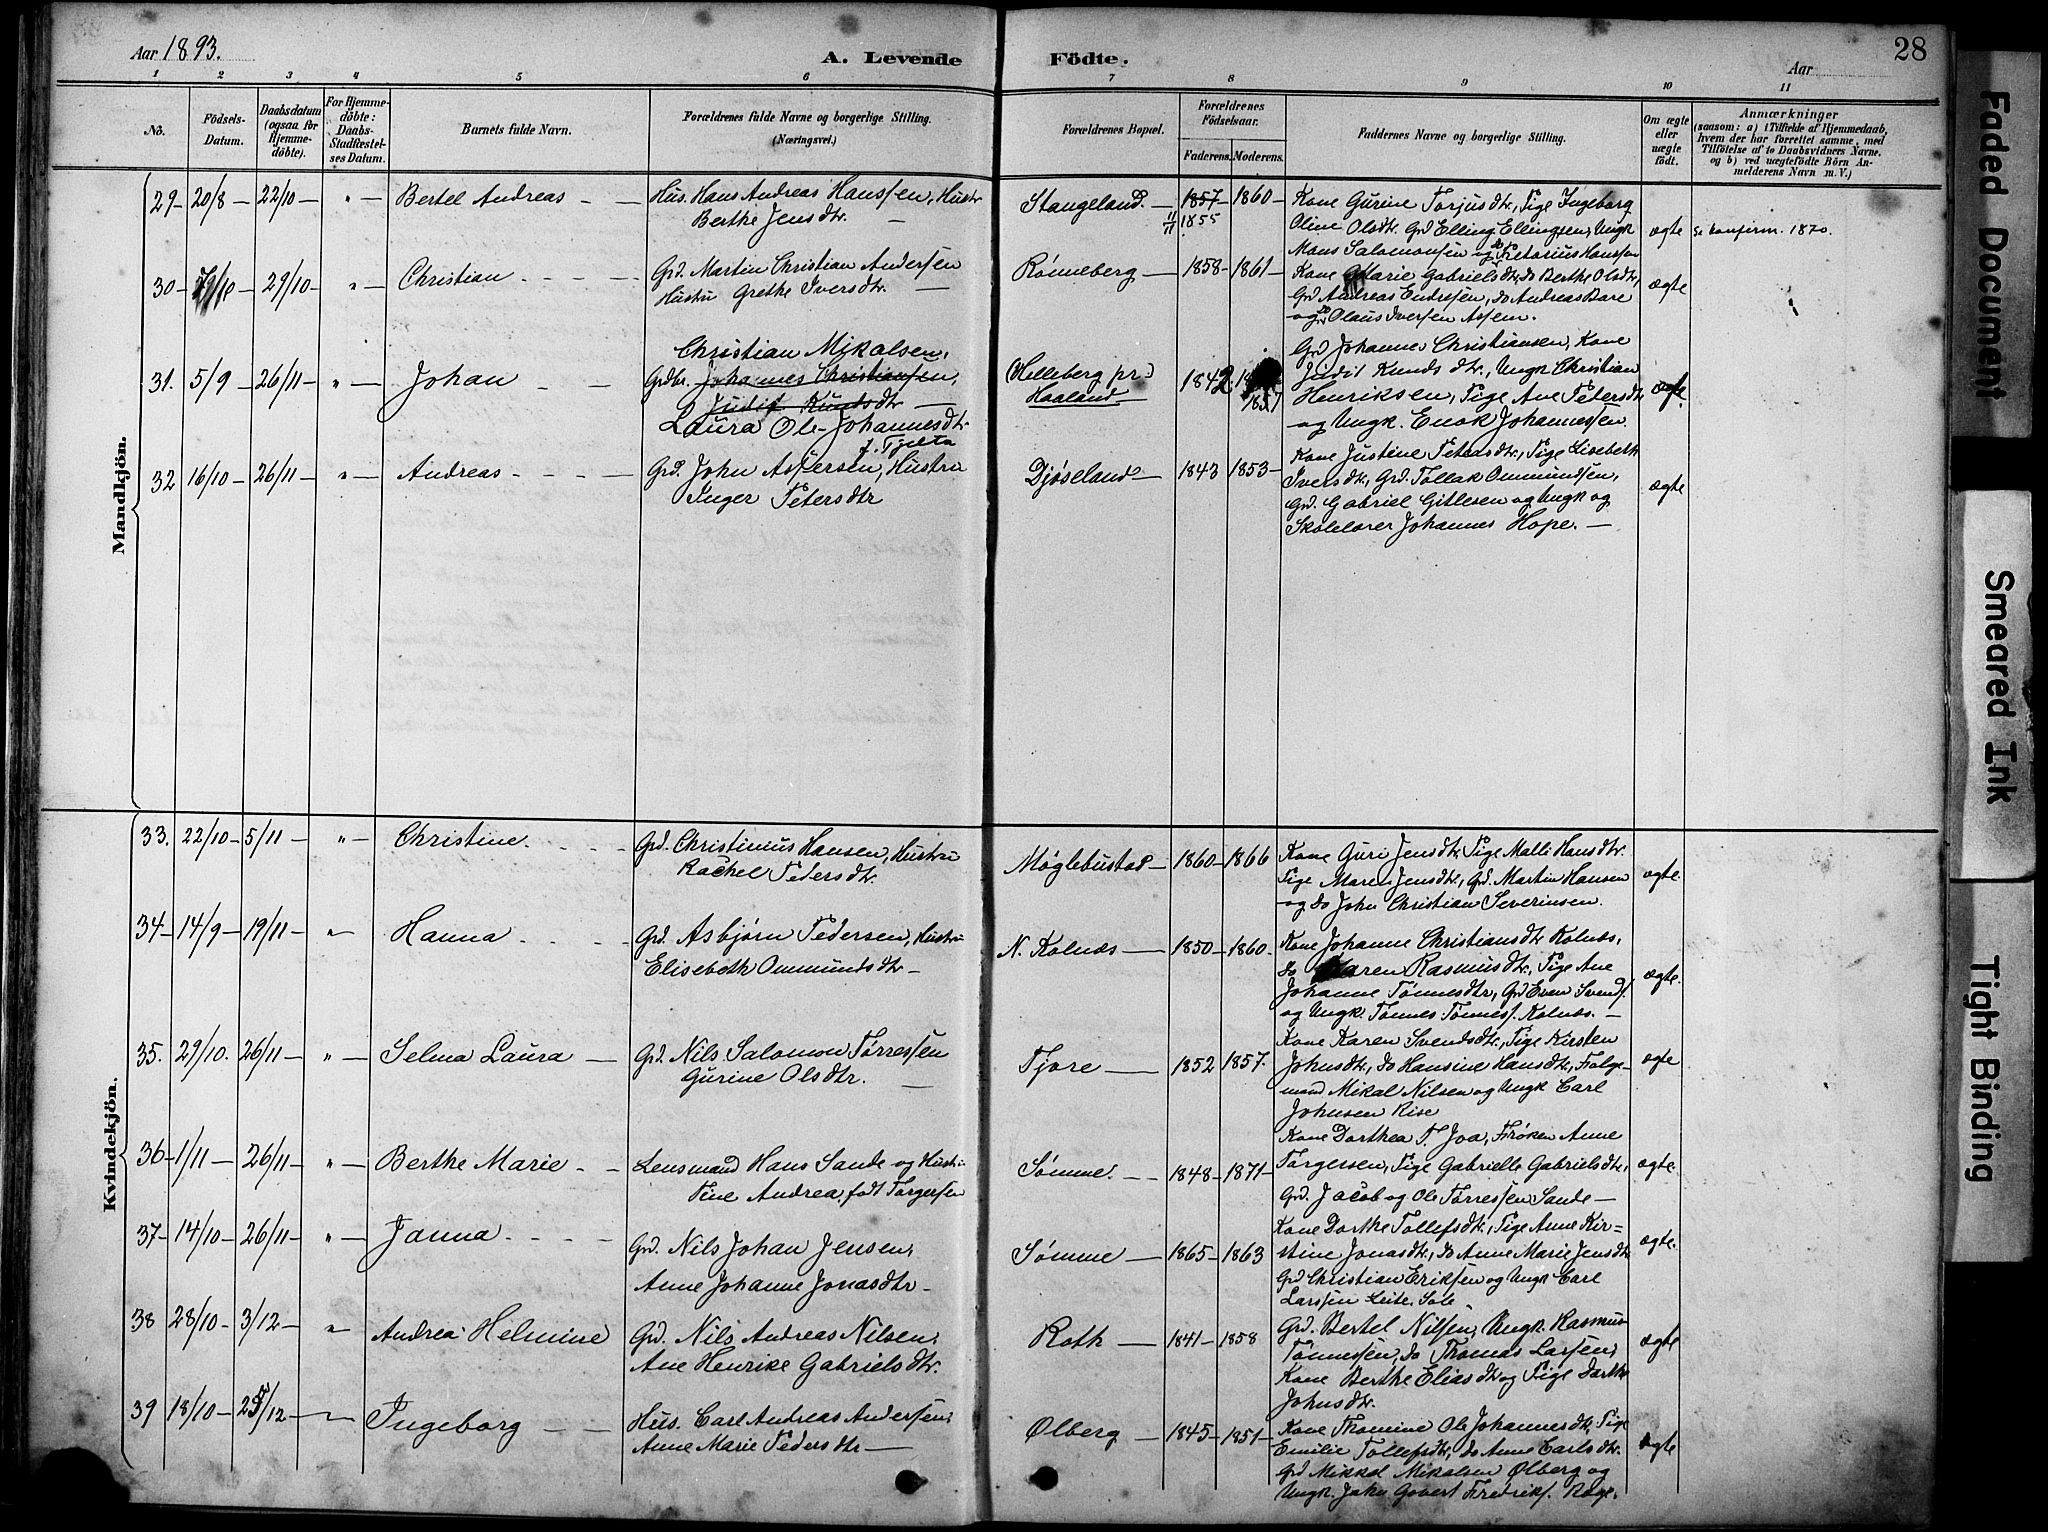 Aar 1893.
A. Levende Födte.
Aar
28
1 2 3 4 5 6 7 8 9 10 11
No.
Födsels-Datum.
Daabsdatum (ogsaa for Hjemme-döbte).
For Hjemme-döbte: Daabs-Stadfæstel-ses Datum.
Barnets fulde Navn.
Forældrenes fulde Navne og borgerlige Stilling.
(Næringsvei.)
Forældrenes Bopæl.
Forældrenes Födselsaar.
Faderens. Moderens.
Faddernes Navne og borgerlige Stilling.
Om ægte eller uægte födt.
Anmærkninger
(saasom: a) i Tilfælde af Hjemmedaab,
hvem der har forrettet samme, med
Tilföielse af to Daabsvidners Navne,
og b) ved uægtefödte Börn An-
melderens Navn m. V.)
Mandkjön.
29 – 20/8 – 22/10 – " – Bertel Andreas – – Hus. Hans Andreas Hanssen, Hustr.
Berthe Jensdtr. –
Stangeland. 1857 – 1860 –
11/11 1855
Kone Gurine Torjusdtr, Pige Ingeborg
Oline Olsdtr. Grd Elling Ellingsen, Ungk
Mons Salomonsen og do Hanssen
ægte
Se konfirm. 1870.
30 – 29/10 – " – Christian – – – – Grd. Martin Christian Andersen
Hustru Grethe Iversdtr. –
Rønneberg – 1858 – 1861 –
Kone Marie Gabrielsdtr, do Berthe Olsdtr,
Grd Andreas Endresen, do Andreas Bore
og Olaus Iversen Assem.
ægte
31. 5/9 – 26/11 – " – Johan – –
Christian Mikalsen,
Grdbr. Johannes Christiansen,
Judit Knutsdtr –
Laura Ole-Johannesdtr
f. Tjelta
(Helleberg pr.)
Haaland 1842. 1857
Grd Johannes Christiansen, Kone
Judit Knuds dtr., Ungk Christian
Henriksen, Pige Ane Petersdtr
og Ungk. Enok Johannessen.
ægte.
32 16/10 – 26/11 – " – Andreas – – – – Grd. John Aspersen, Hustru
Inger Petersdtr
Djøseland – 1843 1853 –
Kone Justine Petersdtr, Pige Lisebeth
Iversdtr, Grd. Tollak Ommundsen,
Grd. Gabriel Gitlesen og Ungk og
Skolelærer Johannes Hope. –
ægte
Kvindekjön.
33. 22/10 – 5/11 – " – Christine. – – – – Grd. Christinius Hansen, Hustru
Rachel Pedersdtr.
Møglebustad – 1860 – 1866
Kone Guri Jensdtr, Pige Malli Hansdtr.
Pige Maren Jensdtr, Grd. Martin Hansen
og do John Christian Severinsen.
ægte.
34 – 14/9 – 19/11 – " Hanna – – – – Grd. Asbjørn Pedersen, Hustru
Elisebeth Ommundsdtr –
N. Kolnæs – 1850 – 1860.
Kone Johanne Christiansdtr Kolnæs,
do Karen Rasmusdtr, Pige Ane
Johanne Tønnesdtr, Grd Even Svends.
og Ungk. Tønnes Tønness. Kolnæs. –
ægte.
35. 29/10. 26/11 – " – Selma Laura – Grd. Nils Salomon Tørressen
Gurine Olsdtr. –
Tjore – 1852 1857.
Kone Karen Svendsdtr, Pige Kirsten
Johnsdtr, do Hansine Hansdtr, Følge-
mand Mikal Nilsen og Ungk Carl
Johnsen Rise
ægte
36 – 1/11 – 26/11 – " – Berthe Marie – – Lensmand Hans Sande og Hustru
Tine Andrea, født Torgersen
Sømme. – – 1848 – 1871 –
Kone Dorthea T. Joa, Frøken Anne
Torgersen, Pige Gabrielle Gabrielsdtr,
Grd. Jacob og Ole Tørressen Sande –
ægte.
37 – 14/10 – 26/11 – " – Janna – – – – Grd. Nils Johan Jensen,
Anne Johanne Jonasdtr –
Sømme – 1865 – 1863
Kone Dorthe Tollefsdtr, Pige Anne Kir-
stine Jonasdtr, do Anne Marie Jensdtr
Grd Christian Eriksen og Ungk Carl
Larssen Leite, Sole
ægte.
38 28/10 – 3/12 – " Andrea Helmine Grd. Nils Andreas Nilsen,
Ane Henrike Gabrielsdtr.
Roth – 1841 – 1858
Grd. Bertel Nilsen, Ungk. Rasmus
Tønnessen, do Thomas Larsen,
Kone Berthe Eliasdtr og Pige Dorthe
Johnsdtr.
ægte
39 18/10 – 25/12 – Ingeborg – – Hus. Carl Andreas Andersen,
Anne Marie Pedersdtr –
Ølberg – 1845 – 1851 –
Kone Thomine Ole Johannesdtr, Pige
Emilie Tollefsdtr, do Anne Carlsdtr.
Grd Mikkal Mikalsen Ølberg og
Ungk. John Govert Fredriks. Røge.
ægte
Faded Document
Smeared Ink
Tight Binding